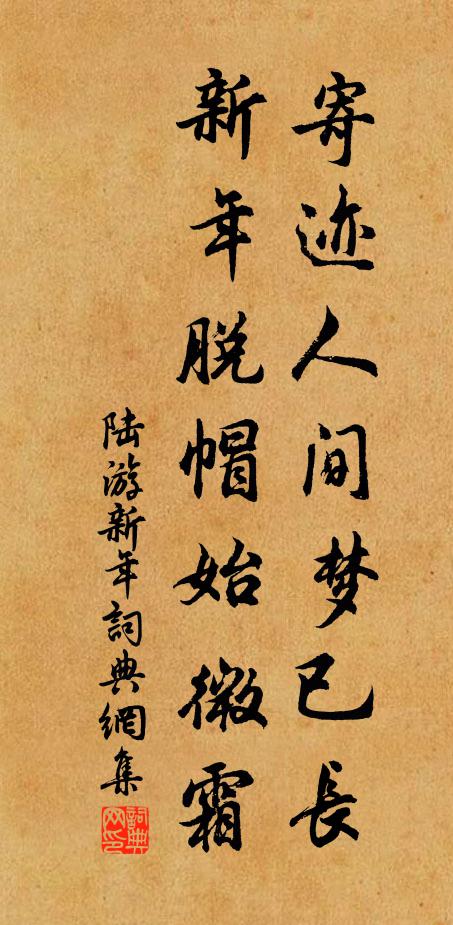 寄迹人间梦已长
新年脱帽始微霜
陆游新年詞典網集
詞典网印